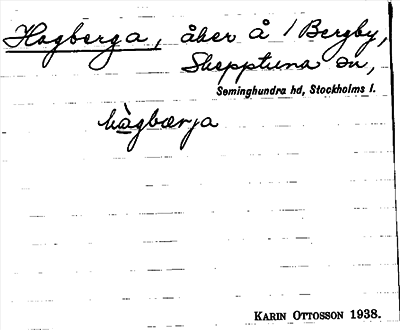 Hagberga, åker å 1 Bergby,
Skepptuna sn,
Seminghundra hd, Stockholms l.
hàgbærja
KARIN OTTOSSON 1938.